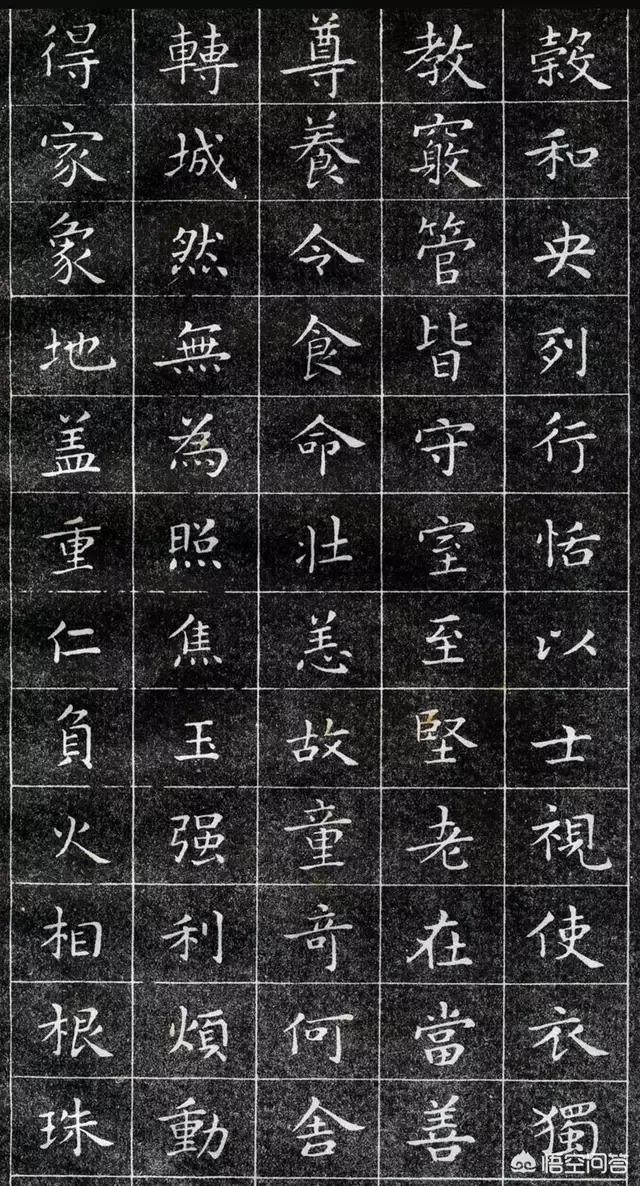 穀和央列行恬以士視使衣獨
教窮管皆守室至堅老在當善
尊養令食命壯恙故童奇何舍
轉城然無為照焦玉强利煩動
得家象地盖重仁負火相根珠
悟空问答